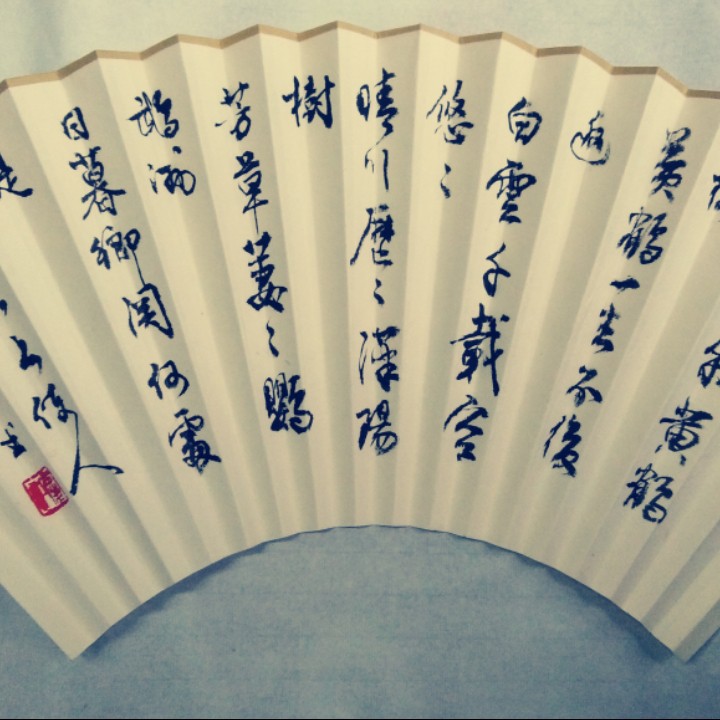 餘黄鶴
黄鶴一去不復
返
白雲千載空
悠〻
晴川歷〻漢陽
樹
芳草萋〻鸚
鵡洲
日暮鄉関何處
是
上使人